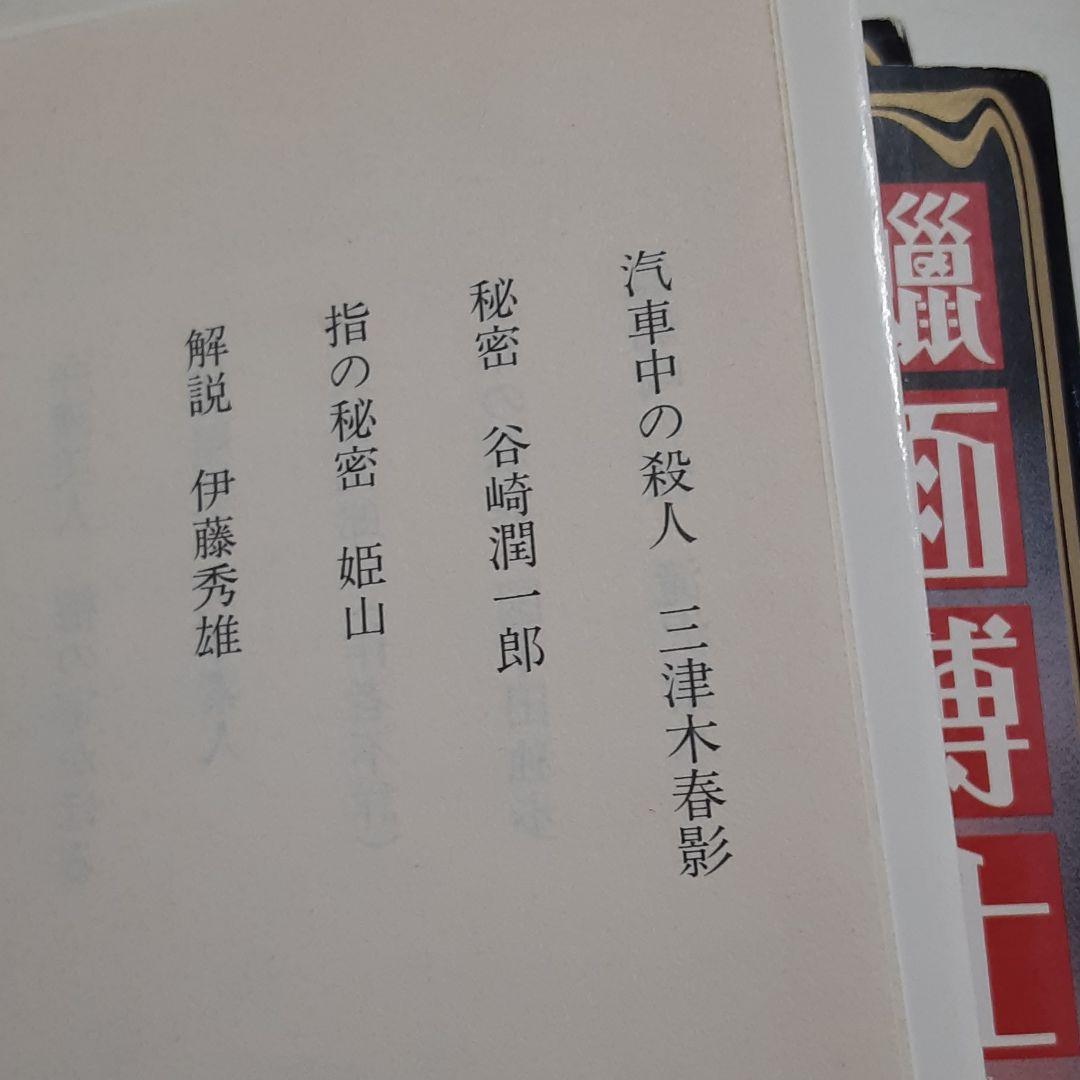 汽車中の殺人 三津木春影
秘密 谷崎潤一郎
指の秘密 姫山
解説 伊藤秀雄
蠟面博士